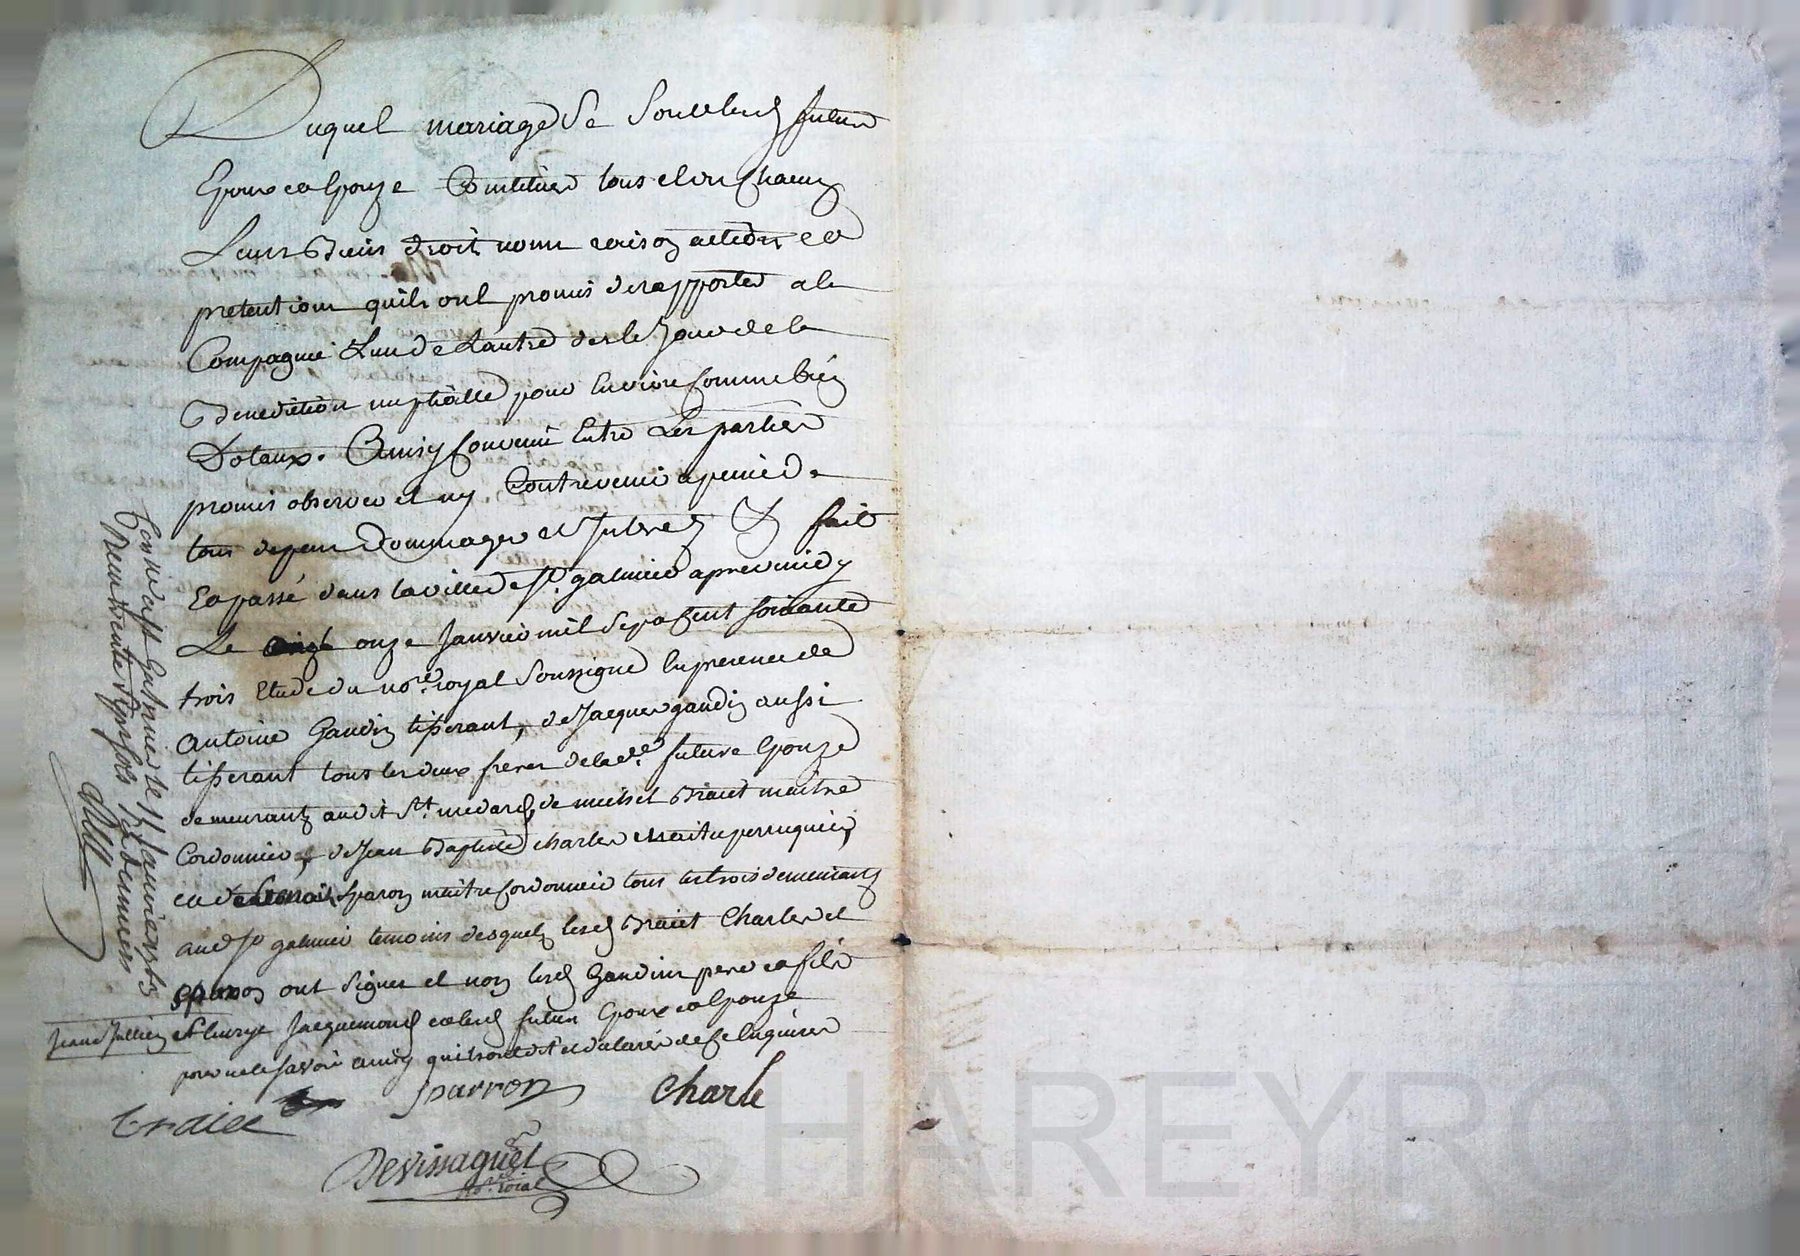 Duquel mariage Se Sont lesd futur
Epoux et Epouze Constitués tous et un Chacun
Leurs Biens droit noms raison action et
pretentions quils ont promis de rapporter a la
Compagnie Lun de Lautre des le Jour de la
Benediction nuptialle pour Leur Comme bien
Dotaux. Ainsy Convenu Entre Les parties
promis observer et ny Contrevenir a peine de
tous depens Dommages et Interez & fait
Et passé dans la ville de St. galmier apres midy
Le onze Janvier mil Sept Cent Soixante
trois Etude du nore. royal Soussigné En presence de
Antoine Gaudin tisserant, de Jacques gaudin aussi
tisserant tous les deux freres de lade. future Epouze
demeurants audit St. medard, de michel Braiet maitre
Cordonnier, de Jean Baptiste charles maitre perruquier,
et de Sparon maitre Cordonnier tous les trois demeurants
aud St galmier temoins desquels lesd Braiet Charles et
Sparon ont Signer et non lesd Gaudins pere et fils
Jean Jullien et fleurye Jacquemond et lesd futur Epoux et Epouze
pour ne le Savoir ainsy quils ont dit et declarés de ce Enquis
Sparron Charle
Braiet
Devissaguet
nore. roial
Controllé a St Galmier le Janvier 1763
Reçu trente Sols